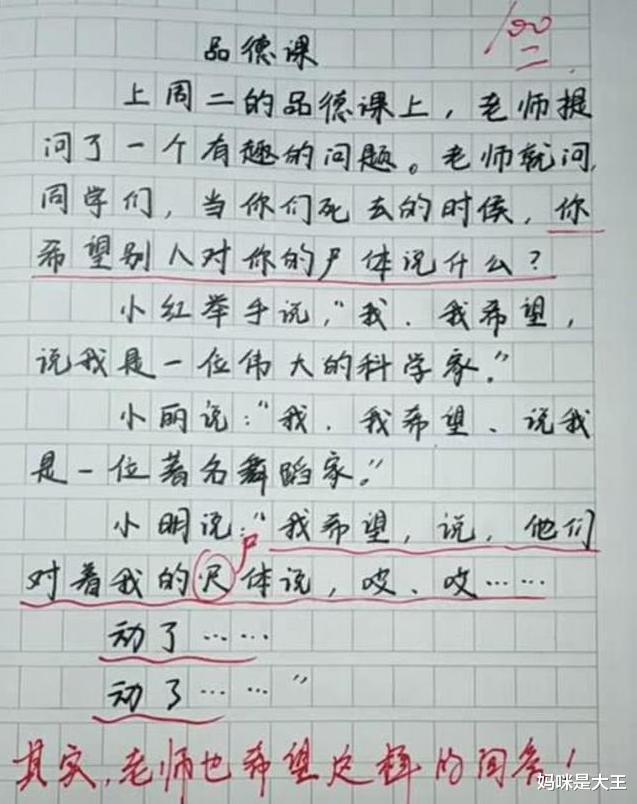 100
品德课
上周二的品德课上，老师提
问了一个有趣的问题。老师就问，
同学们，当你们死去的时候，你
希望别人对你的尸体说什么？
小红举手说，“我．我希望，
说我是一位伟大的科学家．”
小丽说：“我．我希望、说我
是一位著名舞蹈家．”
小明说：“我希望，说，他们
尸
对着我的尺体说，哎、哎……
动了……
动了……”
其实，老师也希望这样的回答！
妈咪是大王